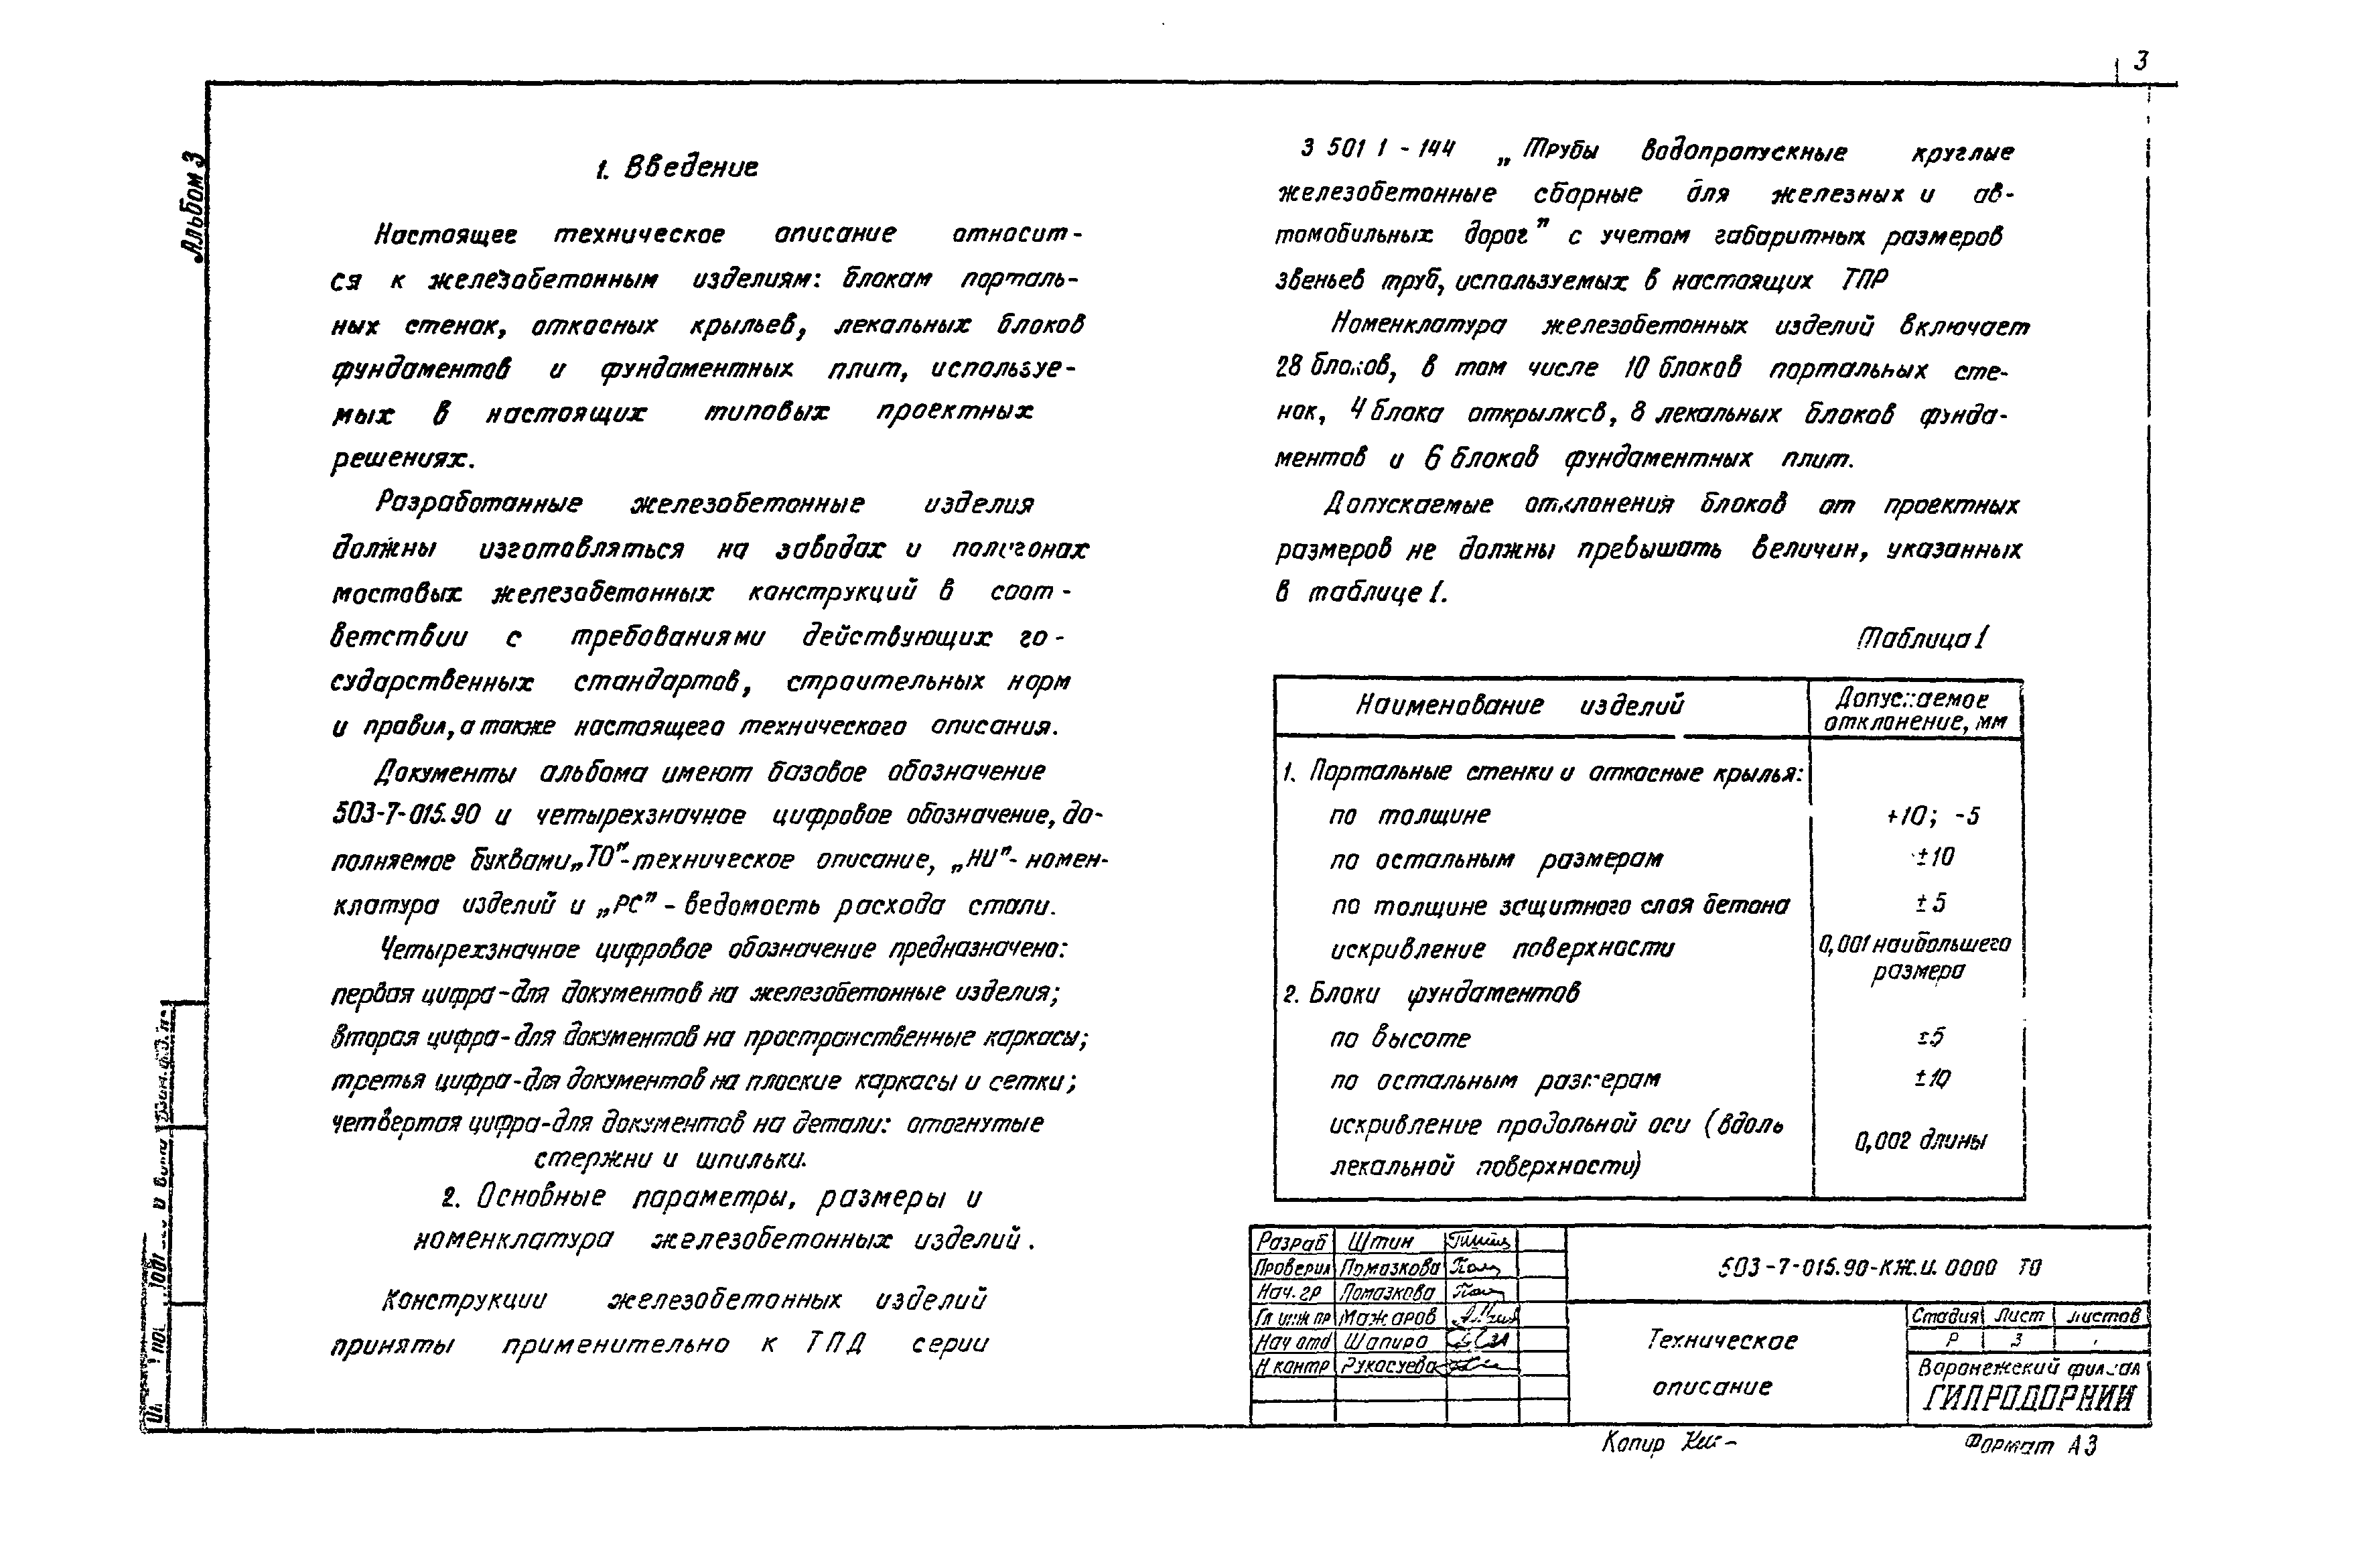 3
Альбом 3
1. Введение
Настоящее техническое описание относит-
ся к железобетонным изделиям: блокам порталь-
ных стенок, откосных крыльев, лекальных блоков
фундаментов и фундаментных плит, используе-
мых в настоящих типовых проектных
решениях.
Разработанные железобетонные изделия
должны изготовляться на заводах и полигонах
мостовых железобетонных конструкций в соот-
ветствии с требованиями действующих го-
сударственных стандартов, строительных норм
и правил, а также настоящего технического описания.
Документы альбома имеют базовое обозначение
503-7-015.90 и четырехзначное цифровое обозначение, до-
полняемое буквами „ТО"- техническое описание, „НИ"- номен-
клатура изделий и „РС" - ведомость расхода стали.
Четырехзначное цифровое обозначение предназначено:
первая цифра - для документов на железобетонные изделия;
вторая цифра - для документов на пространственные каркасы;
третья цифра - для документов на плоские каркасы и сетки;
четвертая цифра - для документов на детали: отогнутые
стержни и шпильки.
2. Основные параметры, размеры и
номенклатура железобетонных изделий.
Конструкции железобетонных изделий
приняты применительно к ТПД серии
3 501 1 - 144 „Трубы водопропускные круглые
железобетонные сборные для железных и ав-
томобильных дорог" с учетом габаритных размеров
звеньев труб, используемых в настоящих ТПР
Номенклатура железобетонных изделий включает
28 блоков, в том числе 10 блоков портальных сте-
нок, 4 блока открылков, 8 лекальных блоков фунда-
ментов и 6 блоков фундаментных плит.
Допускаемые отклонения блоков от проектных
размеров не должны превышать величин, указанных
в таблице 1.
Таблица 1
Наименование изделий
Допускаемое
отклонение, мм
1. Портальные стенки и откосные крылья:
по толщине +10; -5
по остальным размерам ±10
по толщине защитного слоя бетона ±5
искривление поверхности 0,001 наибольшего
размера
2. Блоки фундаментов
по высоте ±5
по остальным размерам ±10
искривление продольной оси (вдоль
лекальной поверхности) 0,002 длины
Разраб Штин
Проверил Помазкова
Нач. гр Помазкова
Гл инж пр Мажаров
Нач отд Шапиро
Н контр Рукосуева
503-7-015.90-КЖ.И. 0000 ТО
Техническое
описание
Стадия Лист Листов
Р 3
Воронежский филиал
ГИПРОДОРНИИ
Копир
Формат А3